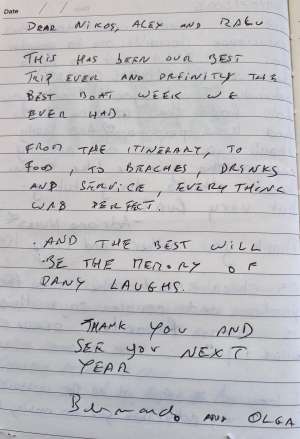 Date / /
DEAR NIKOS, ALEX AND RAGU
THIS HAS BEEN OUR BEST
TRIP EVER AND DEFINITLY THE
BEST BOAT WEEK WE
EVER HAD.
FROM THE ITINERARY, TO
FOOD, TO BEACHES, DRINKS
AND SERVICE, EVERYTHING
WAS PERFECT.
. AND THE BEST WILL
. BE THE MEMORY OF
DANY LAUGHS.
THANK YOU AND
SEE YOU NEXT
YEAR
Bernardo AND OLGA